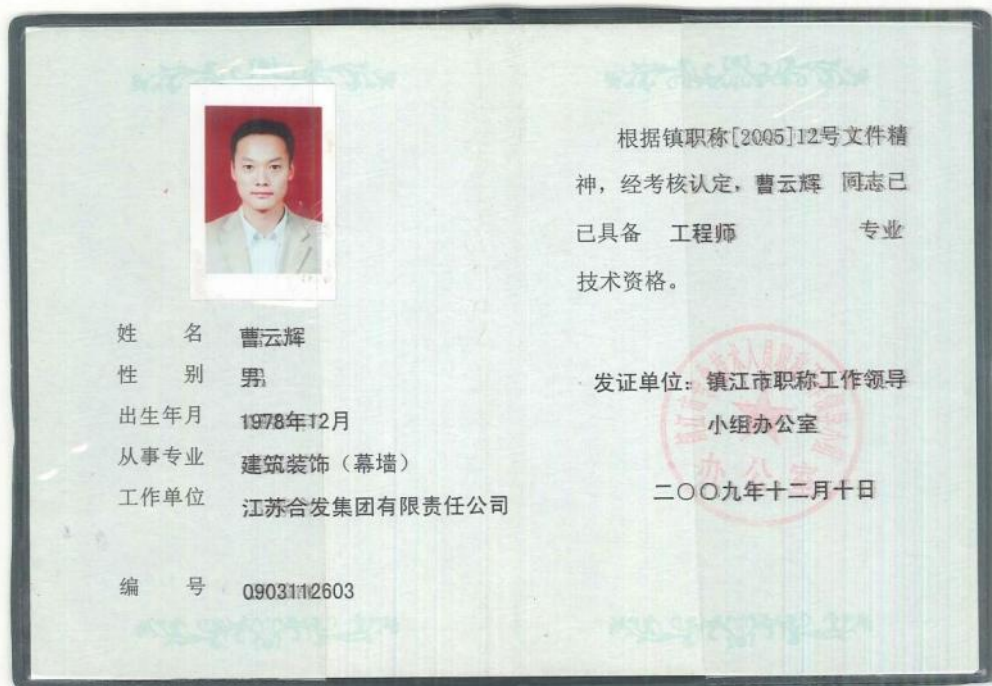 姓 名 曹云辉
性 别 男
出生年月 1978年12月
从事专业 建筑装饰（幕墙）
工作单位 江苏合发集团有限责任公司
编 号 0903112603
根据镇职称[2005]12号文件精
神，经考核认定，曹云辉 同志已
已具备 工程师 专业
技术资格。
发证单位：镇江市职称工作领导
小组办公室
二〇〇九年十二月十日
办公室